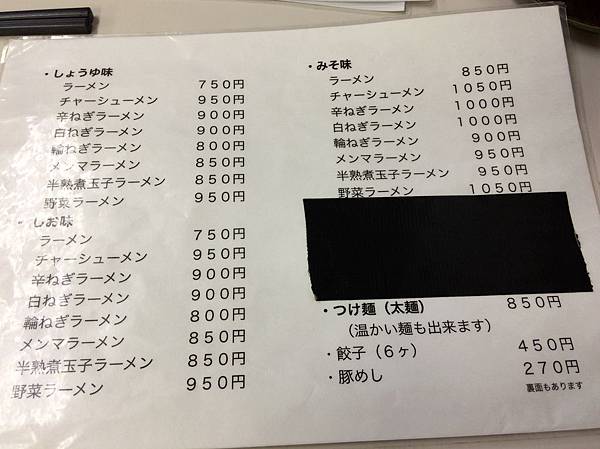 ・しょうゆ味
ラーメン ７５０円
チャーシューメン ９５０円
辛ねぎラーメン ９００円
白ねぎラーメン ９００円
輪ねぎラーメン ８００円
メンマラーメン ８５０円
半熟煮玉子ラーメン ８５０円
野菜ラーメン ９５０円
・しお味
ラーメン ７５０円
チャーシューメン ９５０円
辛ねぎラーメン ９００円
白ねぎラーメン ９００円
輪ねぎラーメン ８００円
メンマラーメン ８５０円
半熟煮玉子ラーメン ８５０円
野菜ラーメン ９５０円
・みそ味
ラーメン ８５０円
チャーシューメン １０５０円
辛ねぎラーメン １０００円
白ねぎラーメン １０００円
輪ねぎラーメン ９００円
メンマラーメン ９５０円
半熟煮玉子ラーメン ９５０円
野菜ラーメン １０５０円
・つけ麺（太麺） ８５０円
（温かい麺も出来ます）
・餃子（６ヶ） ４５０円
・豚めし ２７０円
裏面もあります